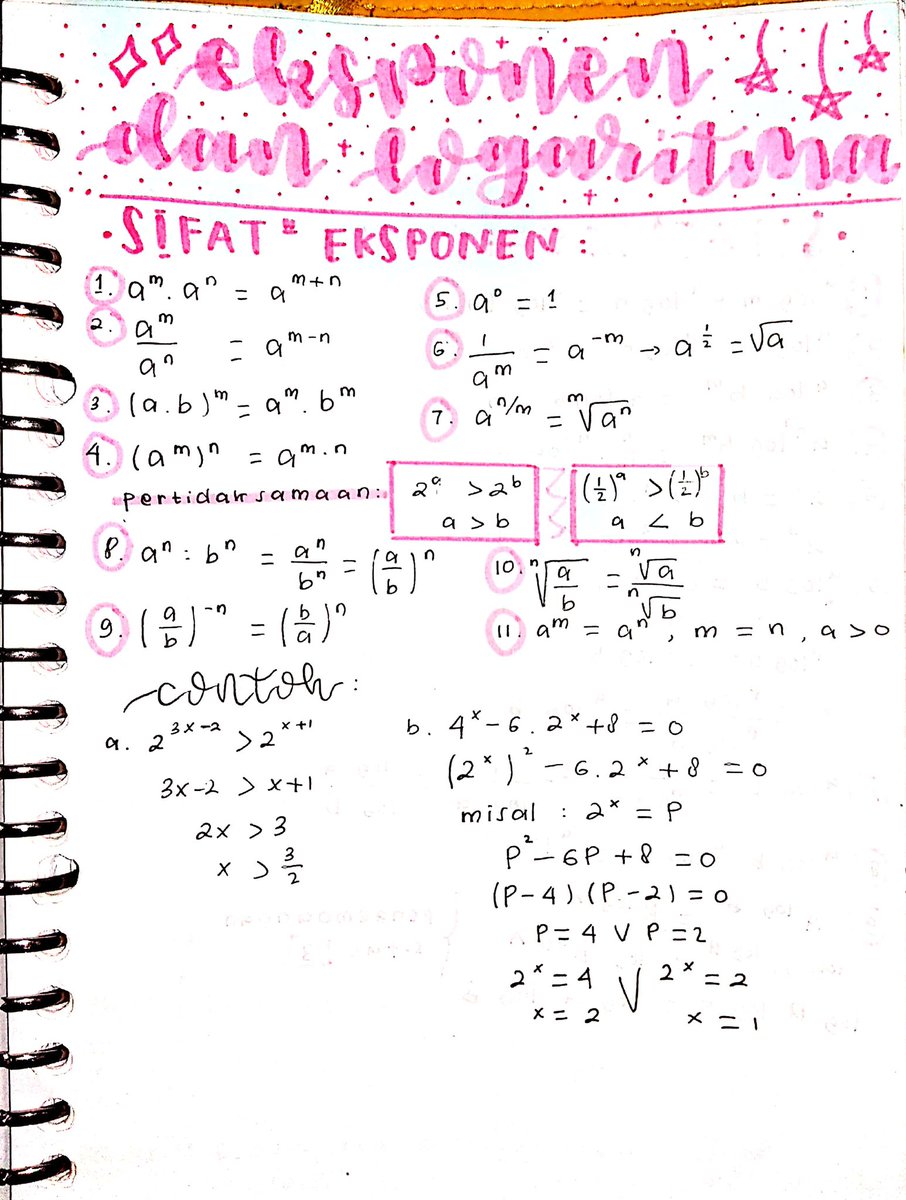 eksponen
dan logaritma
• SIFAT" EKSPONEN :
1. a^m . a^n = a^(m+n)
2. a^m / a^n = a^(m-n)
3. (a.b)^m = a^m . b^m
4. (a^m)^n = a^(m.n)
5. a^0 = 1
6. 1/a^m = a^(-m) → a^(1/2) = √a
7. a^(n/m) = ^m√(a^n)
pertidaksamaan:
2^a > 2^b
a > b
(1/2)^a > (1/2)^b
a < b
8. a^n : b^n = a^n / b^n = (a/b)^n
9. (a/b)^(-n) = (b/a)^n
10. ^n√(a/b) = ^n√a / ^n√b
11. a^m = a^n, m = n, a > 0
contoh :
a. 2^(3x-2) > 2^(x+1)
3x-2 > x+1
2x > 3
x > 3/2
b. 4^x - 6 . 2^x + 8 = 0
(2^x)^2 - 6 . 2^x + 8 = 0
misal : 2^x = P
P^2 - 6P + 8 = 0
(P-4) (P-2) = 0
P = 4 V P = 2
2^x = 4 V 2^x = 2
x = 2 x = 1